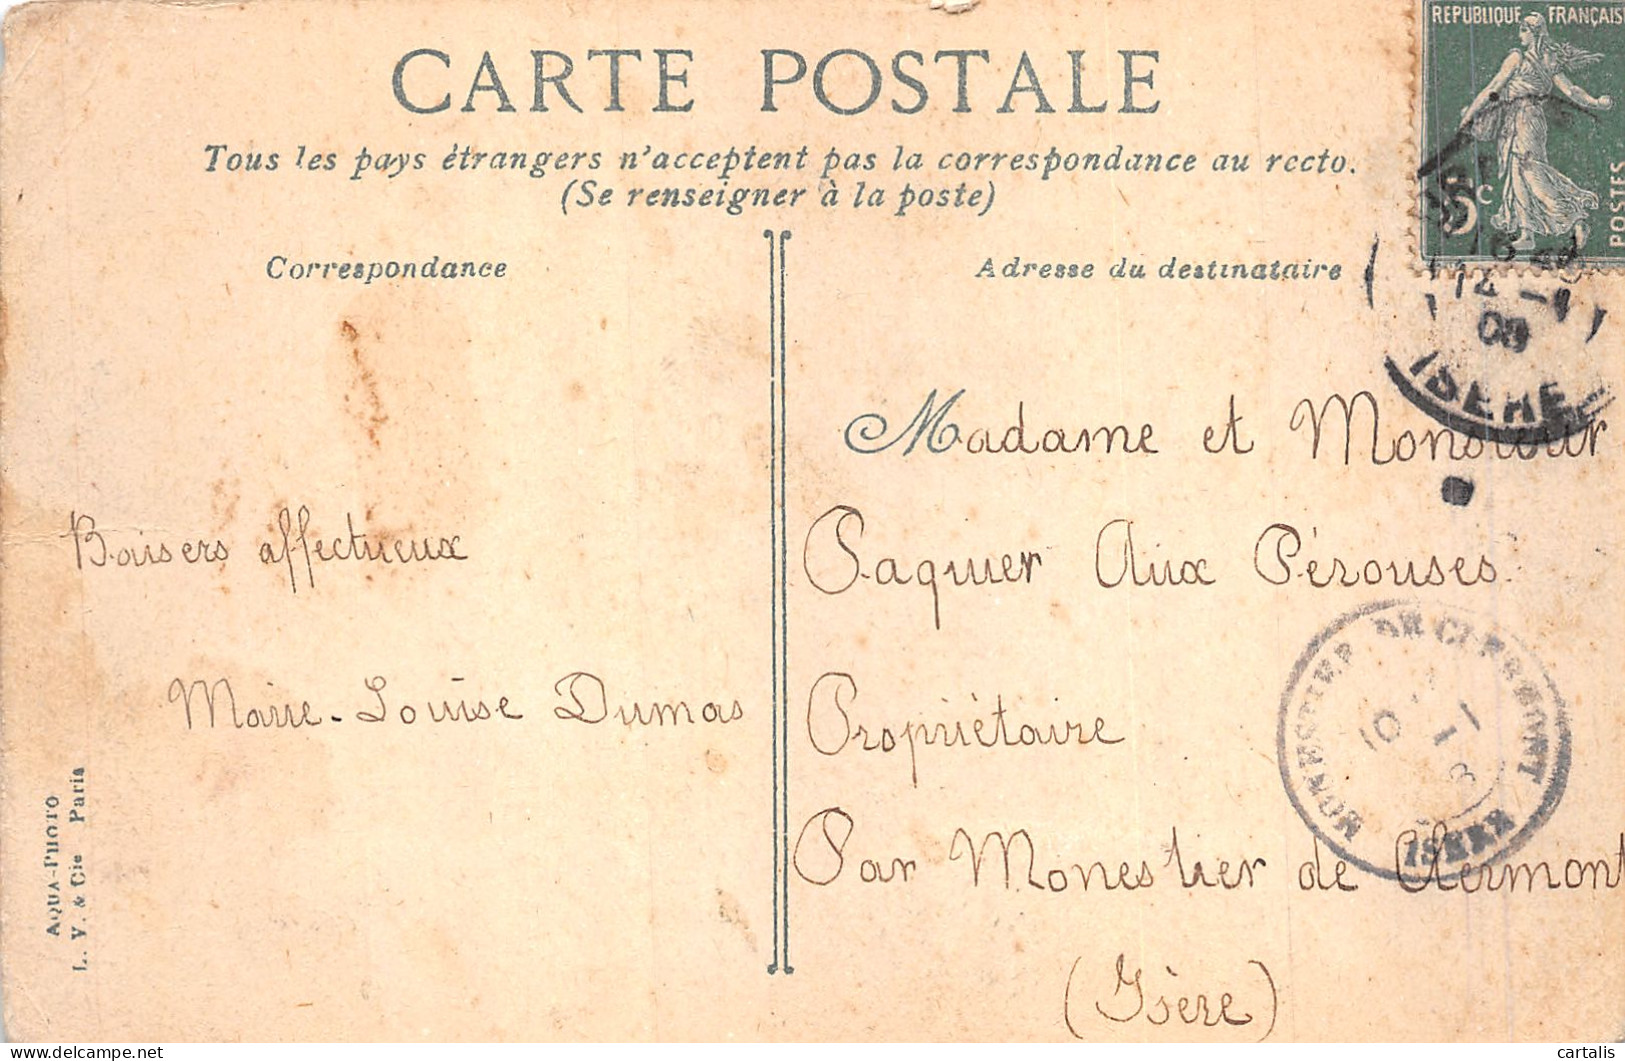 CARTE POSTALE
Tous les pays étrangers n'acceptent pas la correspondance au recto.
(Se renseigner à la poste)
Correspondance
Adresse du destinataire
REPUBLIQUE FRANÇAIS
POSTES
14 -1
08
ISERE
Baisers affectueux
Marie-Louise Dumas
Madame et Monsieur
Paquier Aux Pérouses.
Propriétaire
Par Monestier de Clermont
(Isère)
MONESTIER DE CLERMONT
ISERE
AQUA-PHOTO
L. V. & Cie Paris
www.delcampe.net
cartalis